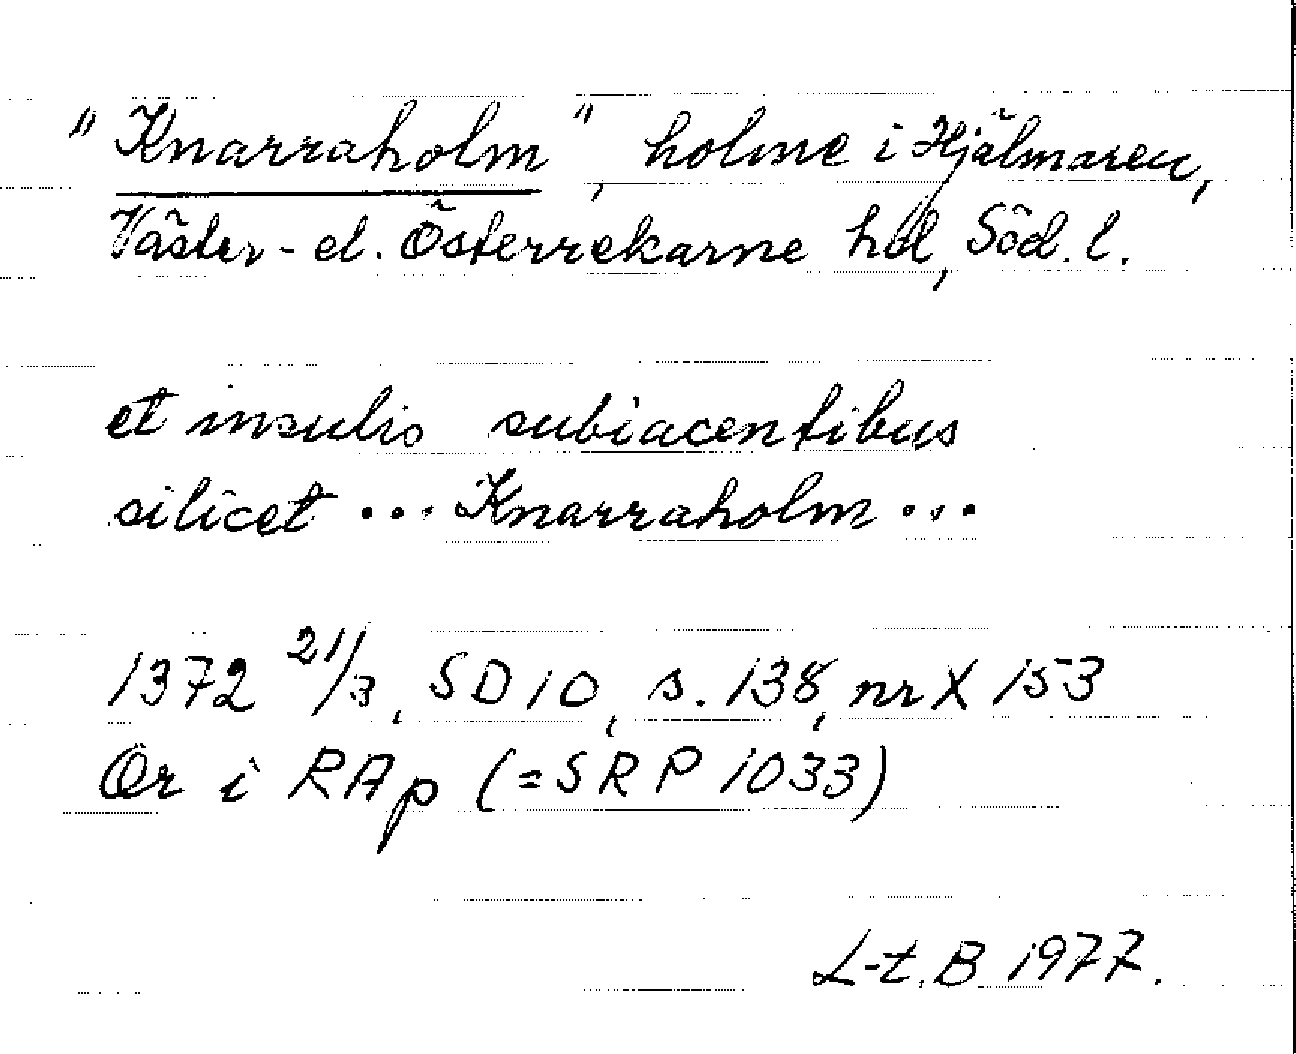 "Knarraholm", holme i Hjälmaren,
Väster- el. Österrekarne hd, Söd. l.
et insulis subiacentibus
silicet ... Knarraholm ...
1372 21/3, SD 10, s. 138, nr X 153
Or i RAp (=SRP 1033)
L-t. B 1977.